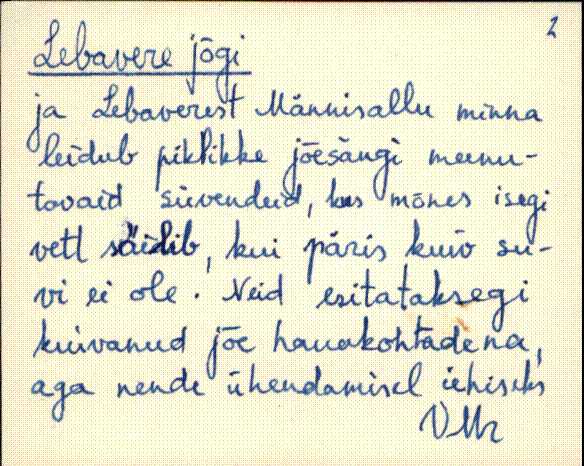 2
Lebavere jõgi
ja Lebaverest Männisallu minna
leidub piklikke jõesängi meenu-
tavaid süvendeid, kus mõnes isegi
vett säilib, kui päris kuiv su-
vi ei ole. Neid esitataksegi
kuivanud jõe hauakohtadena,
aga nende ühendamisel ühiseks